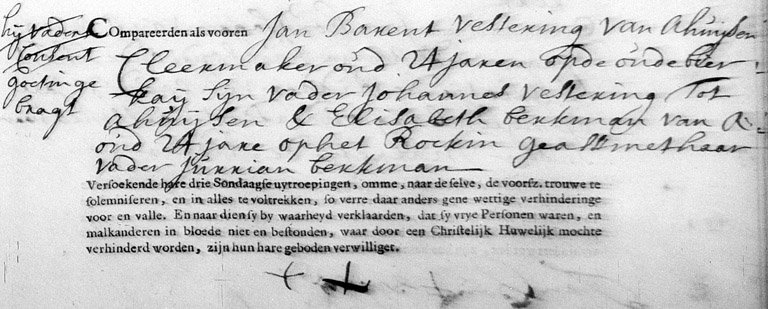 hij vaders
Consent
goet inge
bragt
Compareerden als vooren Jan Barent Vestering van Ahuijsen
Cleermaker oud 24 jaren op de oude
kaij sijn vader Johannes Vestering Tot
ahuijsen & Elisabeth berkman van A
oud 24 jare op het Rockin geassst met haar
vader Jurriian berkman
Versoekende hare drie Sondaagse uytroepingen, omme, naar de selve, de voorsz. trouwe te
solemniseren, en in alles te voltrekken, so verre daar anders gene wettige verhinderinge
voor en valle. En naar dien sy by waarheyd verklaarden, dat sy vrye Personen waren, en
malkanderen in bloede niet en bestonden, waar door een Christelijk Huwelijk mochte
verhinderd worden, zijn hun hare geboden verwilliget.